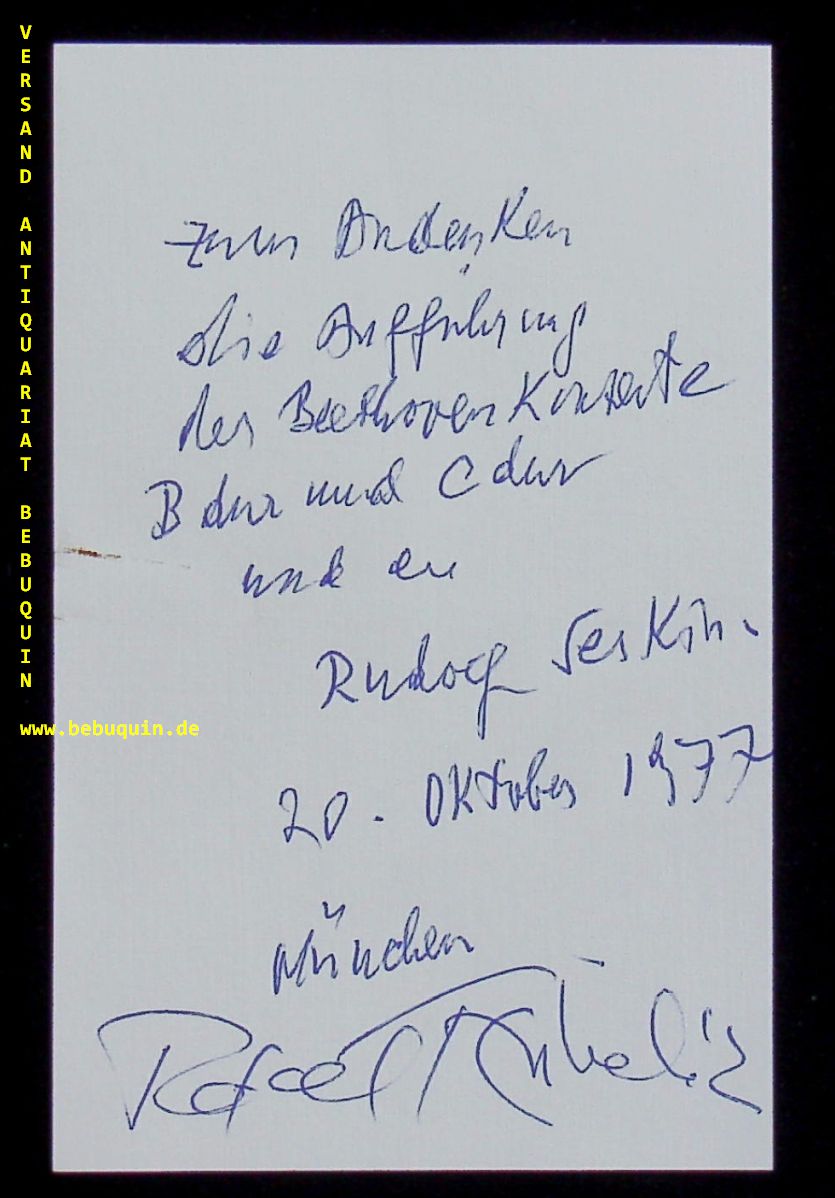 VERSAND ANTIQUARIAT BEBUQUIN
www.bebuquin.de
zum Andenken
die Aufführung
der Beethoven Konzerte
B dur und C dur
und an
Rudolf Serkin.
20. Oktober 1977
München
Rafael Kubelik